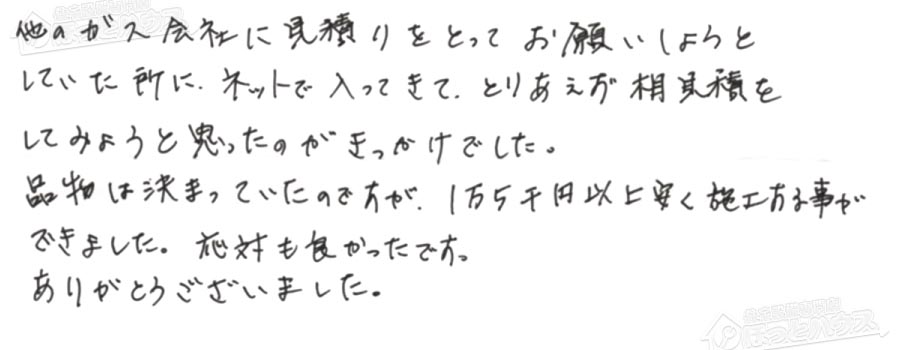 他のガス会社に見積りをとってお願いしようと
していた所に、ネットで入ってきて、とりあえず相見積を
してみようと思ったのがきっかけでした。
品物は決まっていたのですが、1万5千円以上安く施工する事が
できました。応対も良かったです。
ありがとうございました。
ほっとハウス